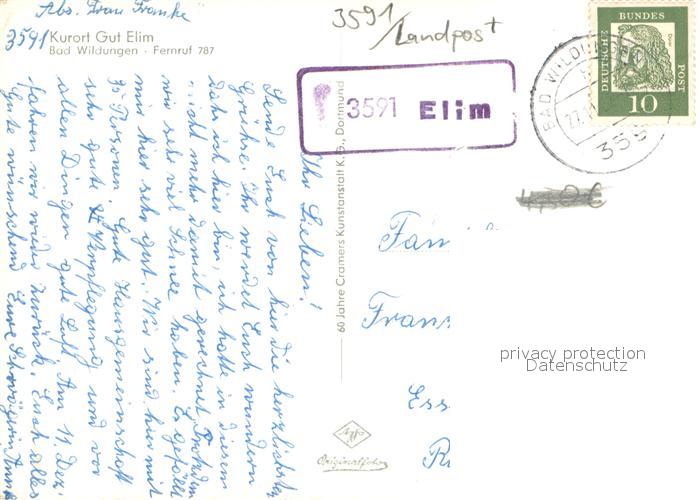 Abs. Frau Franke
3591 Kurort Gut Elim
Bad Wildungen · Fernruf 787
3591
/Landpost
3591 Elim
DEUTSCHE
BUNDES
POST
10
BAD WILDUN
27.11
359
60 Jahre Cramers Kunstanstalt K.G., Dortmund
Ihr Lieben!
Sende Euch von hier die herzlichsten
Grüße. Ihr werdet Euch wundern
daß ich hier bin, ich hatte in diesem
nicht mehr damit gerechnet. Trotzdem
wir sehr viel Schnee haben. Es gefällt
mir hier sehr gut. Wir sind hier mit
35 Personen. Gute Hausgemeinschaft
sehr gute Verpflegung und vor
allen Dingen gute Luft. Am 11. Dez.
fahren wir wieder zurück. Euch alles
Gute wünschend Eure Schwägerin Anna
Fam
Frans
Ess
R
Agfa
Originalfoto
privacy protection
Datenschutz